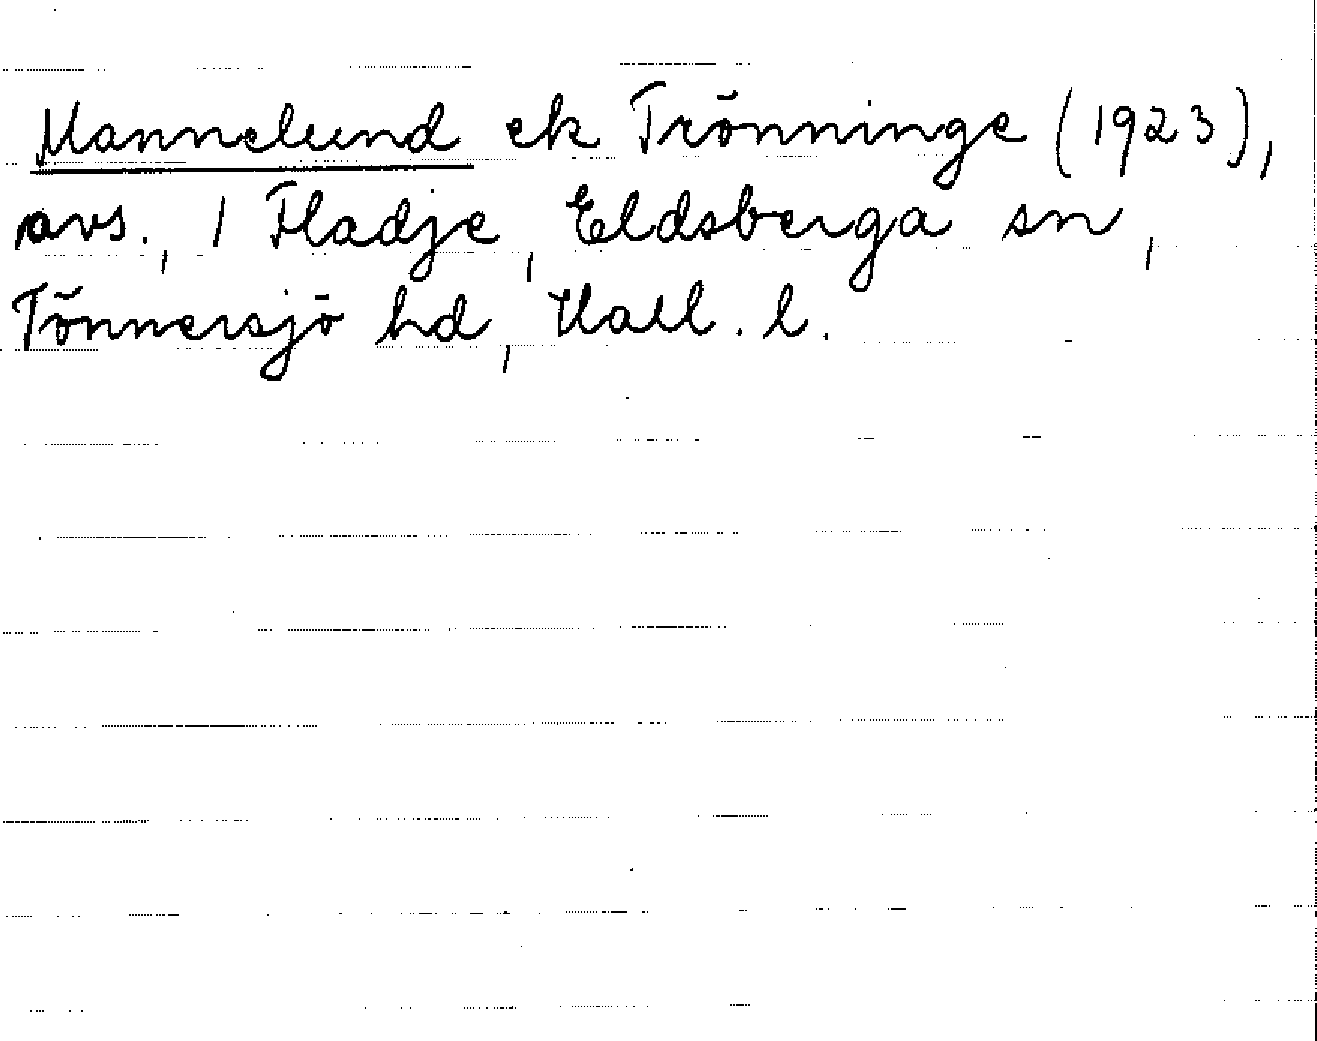 Mannelund ek Trönninge (1923),
avs., 1 Fladje, Eldsberga sn,
Tönnersjö hd, Hall. l.